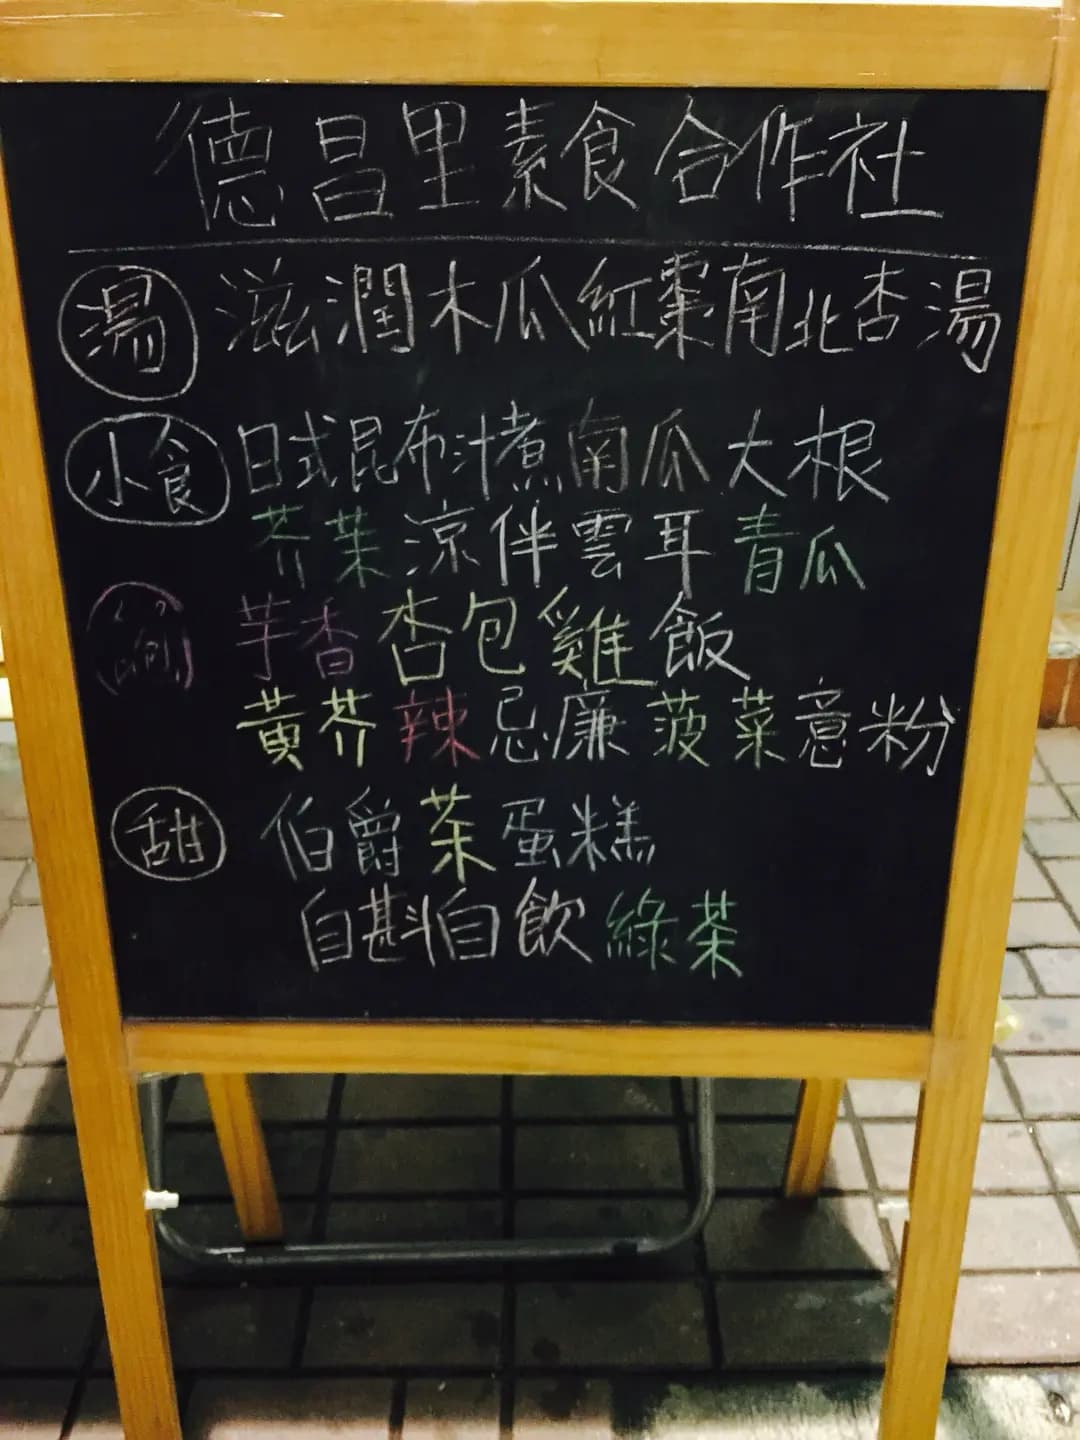 德昌里素食合作社
湯 滋潤木瓜紅棗南北杏湯
小食 日式昆布汁煮南瓜大根
芥菜涼伴雲耳青瓜
芋香杏包雞飯
黃芥辣忌廉菠菜意粉
甜 伯爵茶蛋糕
自斟自飲綠茶